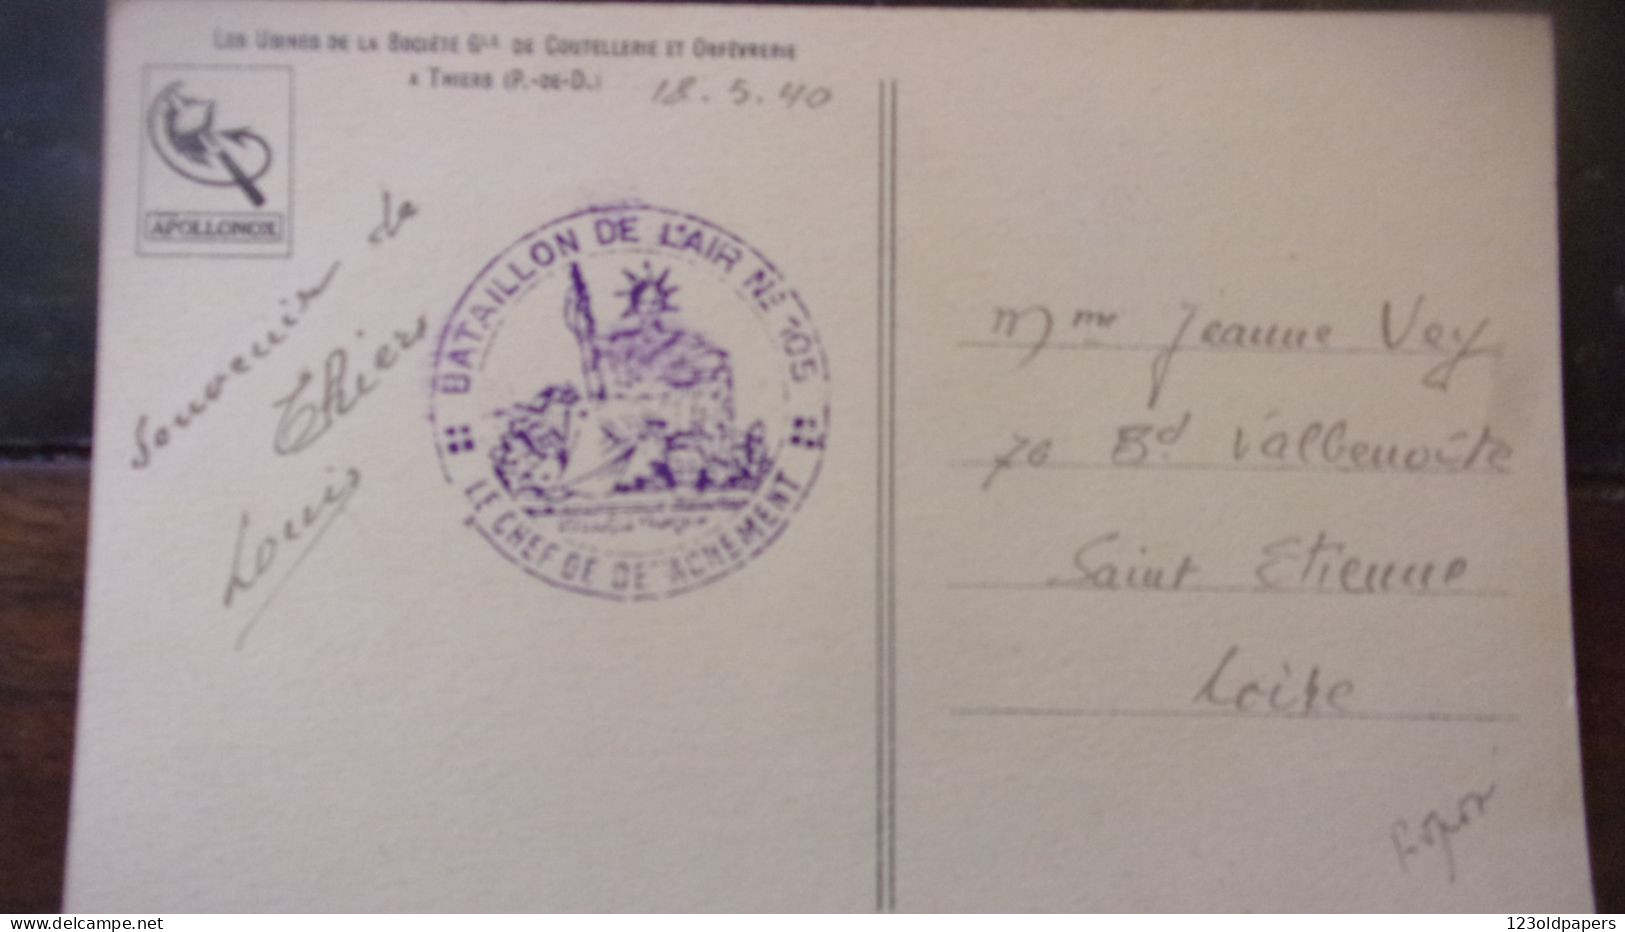 LES USINES DE LA SOCIÉTÉ GLE DE COUTELLERIE ET ORFÈVRERIE
A THIERS (P.-DE-D.)
18.5.40
APOLLONOX
Souvenir de
Thiers
Louis
BATAILLON DE L'AIR No 105
LE CHEF DE DETACHEMENT
Mme Jeanne Vey
70 Bd Valbenoîte
Saint Etienne
Loire
delcampe.net
123oldpapers